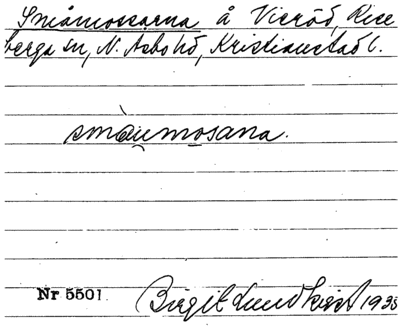 Småmossarna å Vieröd, Rise
berga sn, N. Åsbo hd, Kristianstad l.
småumosana.
Nr 5501 Birgit Lundkvist 1935